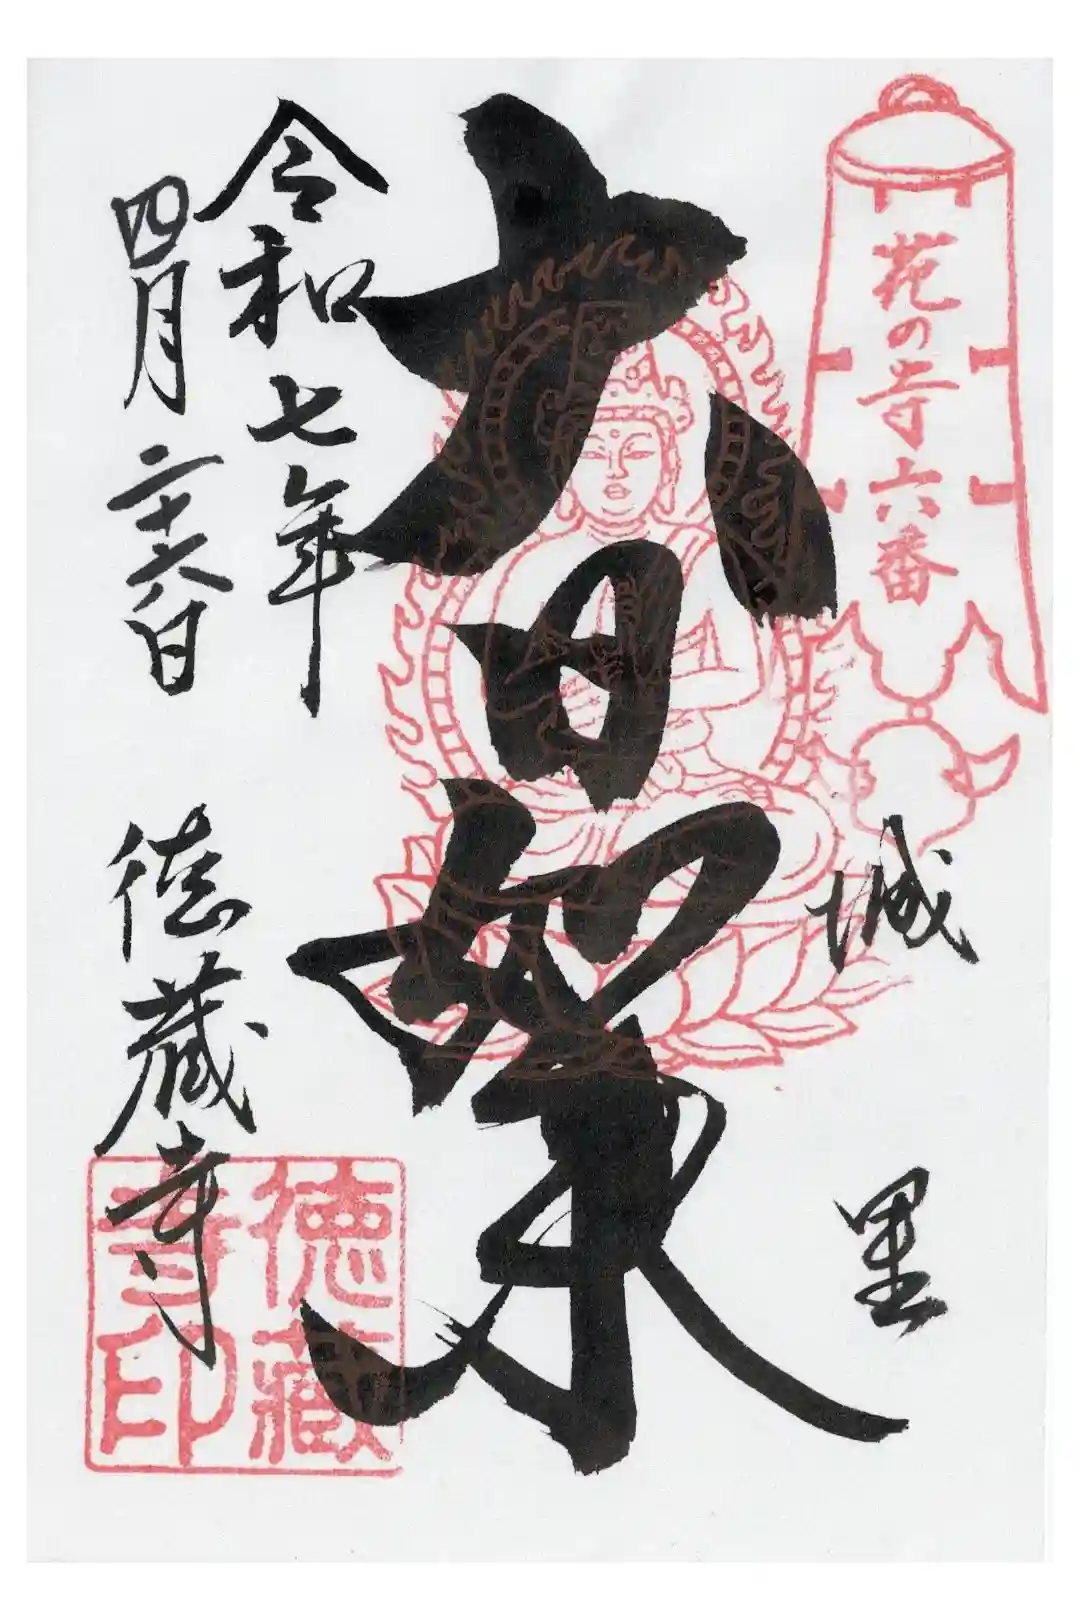 花の寺六番
城里
大日如来
令和七年
四月二十六日
徳蔵寺
徳蔵寺印